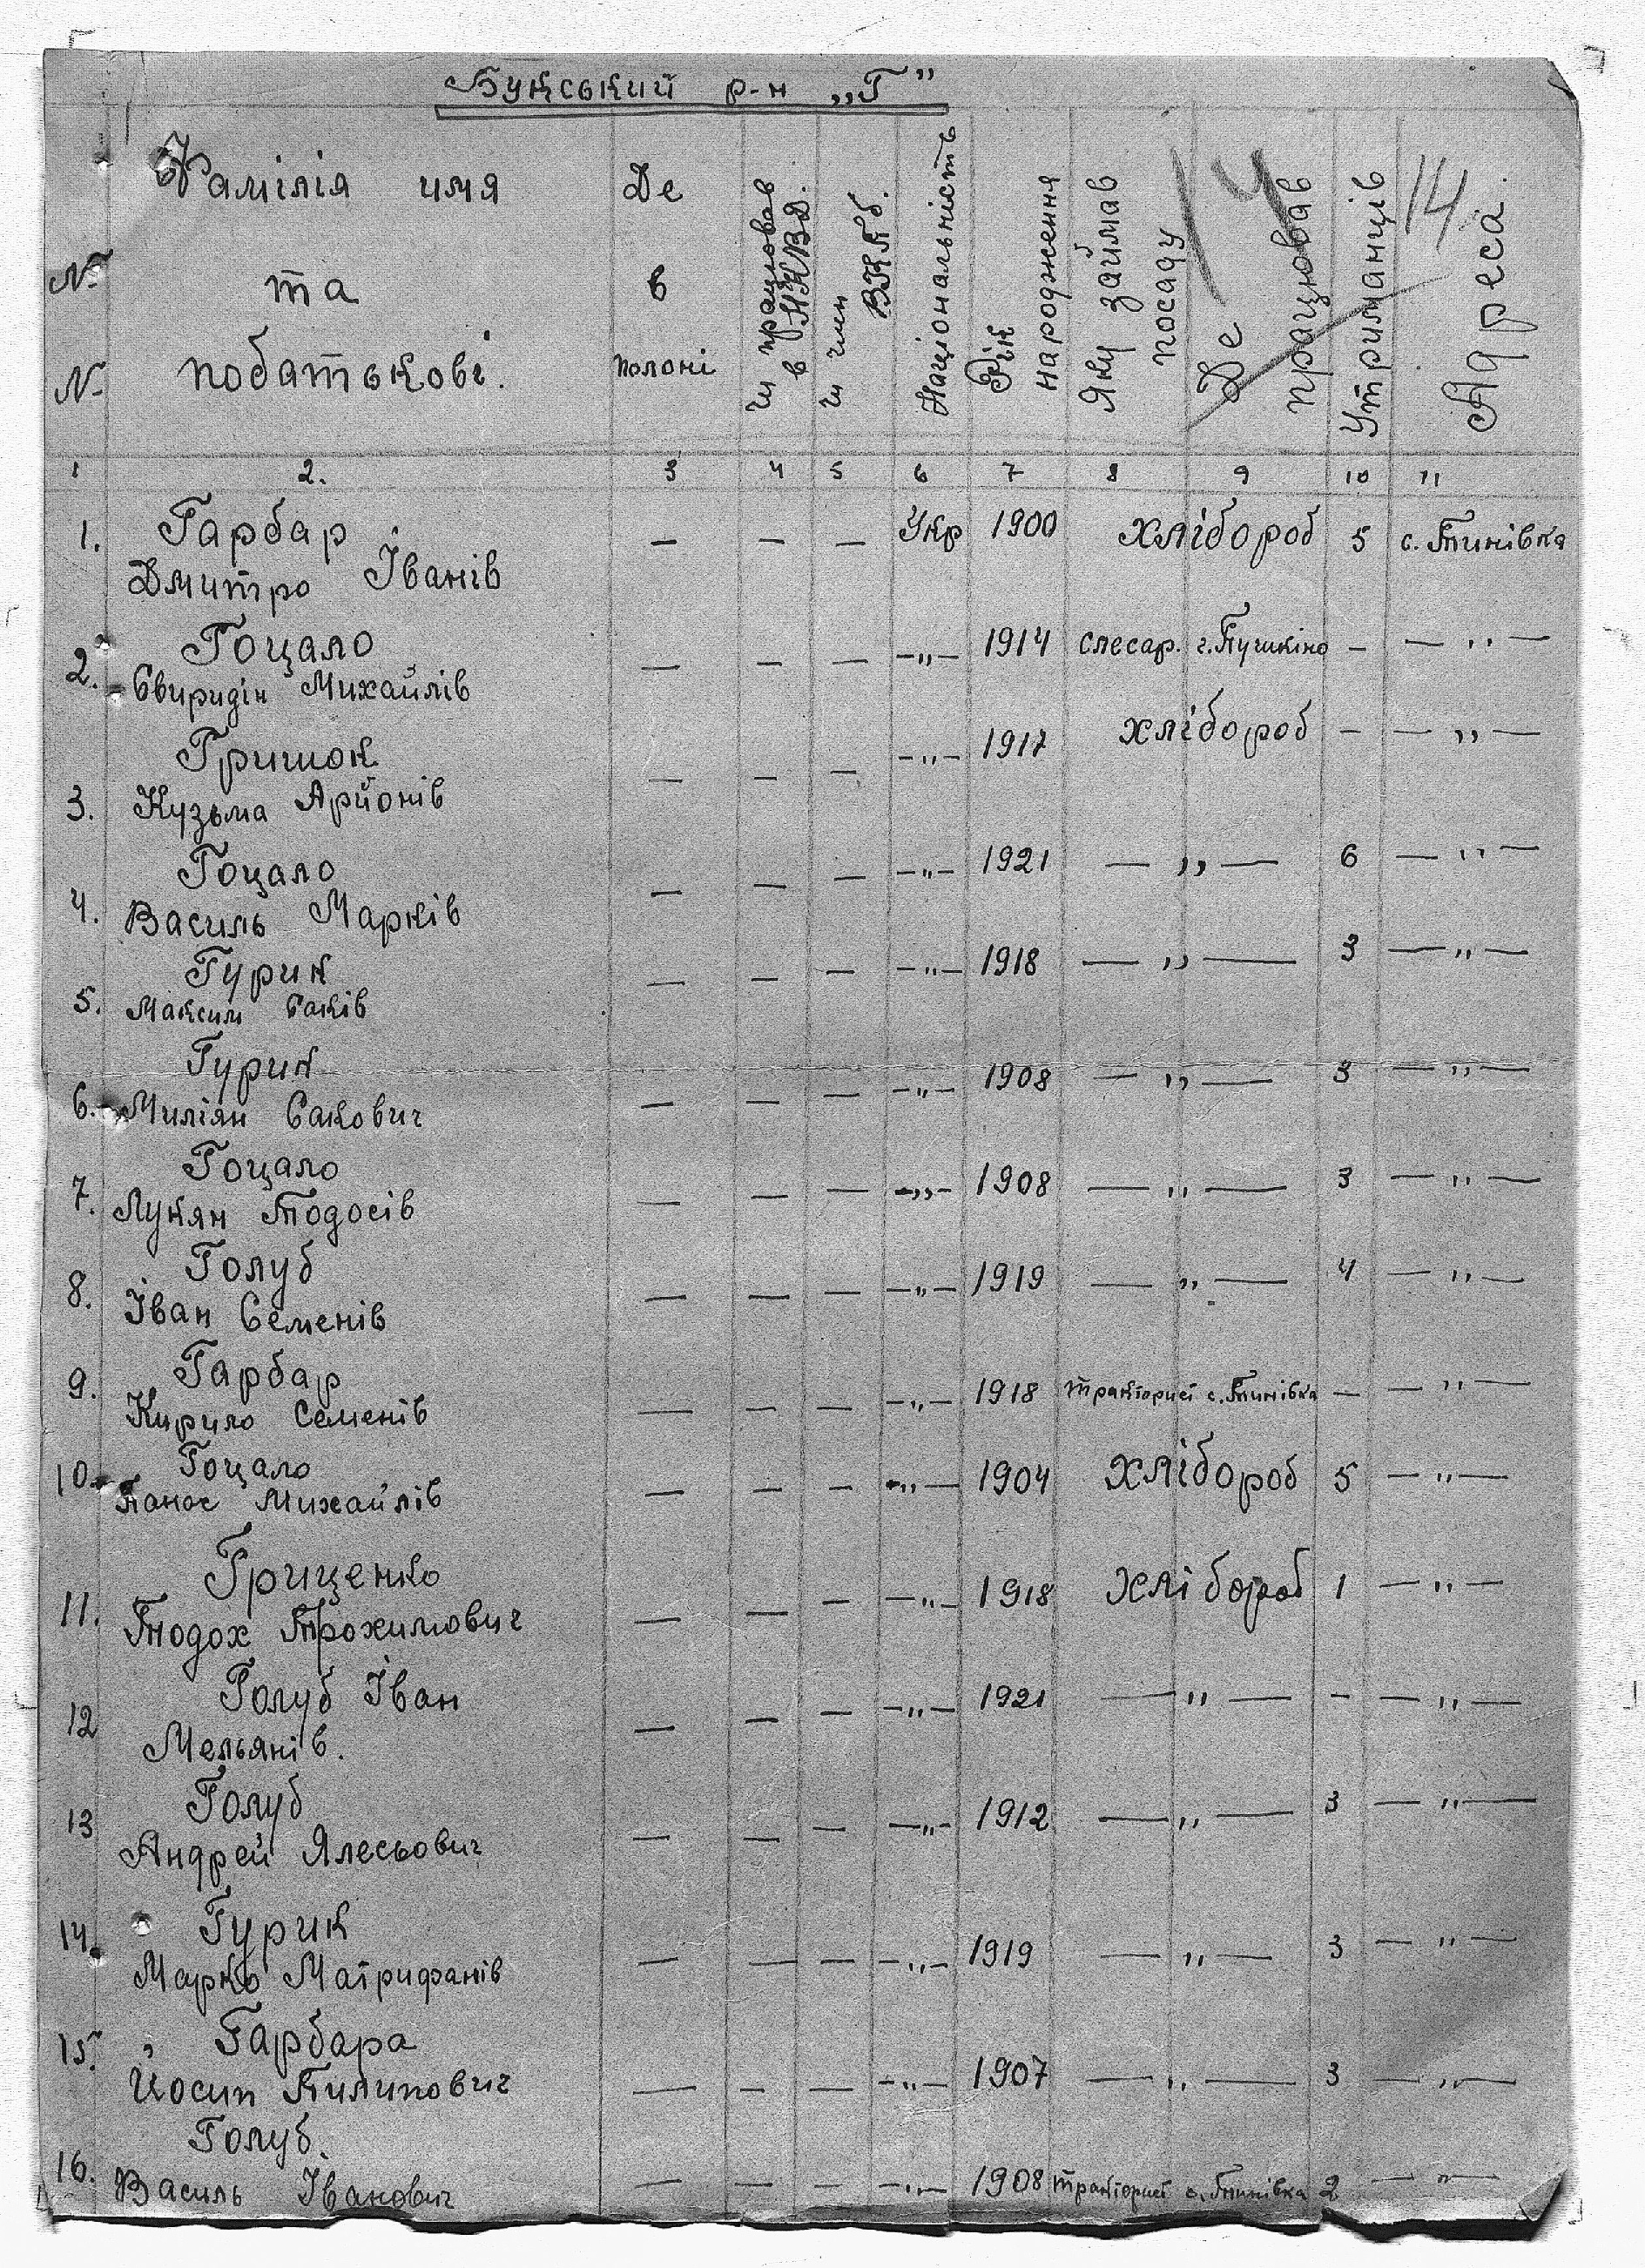 Букський р-н „Г"
14
14
№ № Фамілія имя та побатькові. Де в полоні чи працював в Н.К.В.Д. чи член ВКПб. Національність Рік народження Яку займав посаду Де працював Утриманців Адреса.
1 2. 3 4 5 6 7 8 9 10 11
Гарбар
1. Дмитро Іванів — — — Укр 1900 хлібороб 5 с. Тинівка
Гоцало
2. Свиридін Михайлів — — — -„- 1914 слесар. г. Пушкіно - — „ —
Гришок
3. Кузьма Арйонів — — — -„- 1917 хлібороб - — „ —
Гоцало
4. Василь Марків — — — -„- 1921 — „ — 6 — „ —
Гурик
5. Максим Саків — — — -„- 1918 — „ — 3 — „ —
Гурик
6. Миліян Сакович — — — -„- 1908 — „ — 3 — „ —
Гоцало
7. Лукян Тодосів — — — -„- 1908 — „ — 3 — „ —
Голуб
8. Іван Семенів — — — -„- 1919 — „ — 4 — „ —
Гарбар
9. Кирило Семенів — — — -„- 1918 тракторист с. Тинівка — — „ —
Гоцало
10. Панас Михайлів — — — -„- 1904 хлібороб 5 — „ —
Грищенко
11. Тодох Трохимович — — — -„- 1918 хлібороб 1 — „ —
Голуб Іван
12 Мельянів. — — — -„- 1921 — „ — - — „ —
Голуб
13 Андрей Ялесьович — — — -„- 1912 — „ — 3 — „ —
Гурик
14. Марко Матрифанів — — — -„- 1919 — „ — 3 — „ —
Гарбара
15. Йосип Пилипович — — — -„- 1907 — „ — 3 — „ —
Голуб.
16. Василь Іванович — — — -„- 1908 тракторист с. Тинівка 2 — „ —